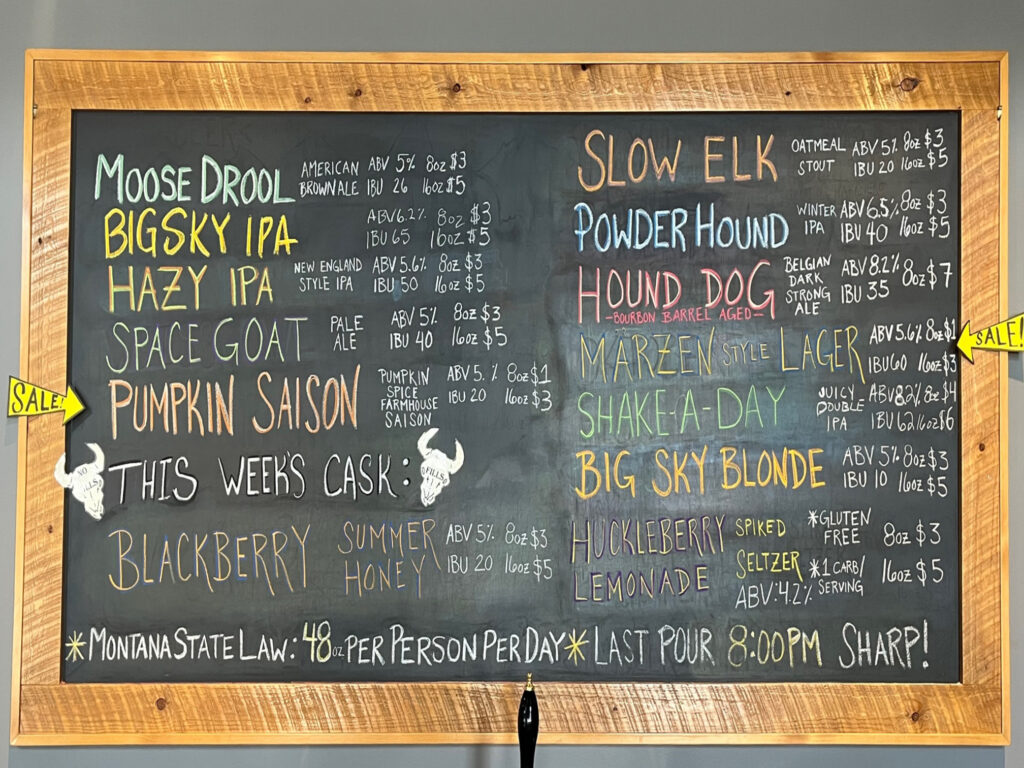 MOOSE DROOL AMERICAN BROWN ALE ABV 5% 8oz $3 IBU 26 16oz $5
BIG SKY IPA ABV 6.2% 8oz $3 IBU 65 16oz $5
HAZY IPA NEW ENGLAND STYLE IPA ABV 5.6% 8oz $3 IBU 50 16oz $5
SPACE GOAT PALE ALE ABV 5% 8oz $3 IBU 40 16oz $5
SALE!
PUMPKIN SAISON PUMPKIN SPICE FARMHOUSE SAISON ABV 5.% 8oz $1 IBU 20 16oz $3
NO FILLS THIS WEEK'S CASK: NO FILLS
BLACKBERRY SUMMER HONEY ABV 5% 8oz $3 IBU 20 16oz $5
SLOW ELK OATMEAL STOUT ABV 5% 8oz $3 IBU 20 16oz $5
POWDER HOUND WINTER IPA ABV 6.5% 8oz $3 IBU 40 16oz $5
HOUND DOG BELGIAN DARK STRONG ALE ABV 8.2% 8oz $7 IBU 35
-BOURBON BARREL AGED-
MÄRZEN STYLE LAGER ABV 5.6% 8oz $1 IBU 60 16oz $3
SALE!
SHAKE-A-DAY JUICY DOUBLE IPA ABV 8.2% 8oz $4 IBU 62 16oz $6
BIG SKY BLONDE ABV 5% 8oz $3 IBU 10 16oz $5
HUCKLEBERRY LEMONADE SPIKED SELTZER ABV: 4.2% *GLUTEN FREE *1 CARB/SERVING 8oz $3 16oz $5
*MONTANA STATE LAW: 48oz PER PERSON PER DAY* LAST POUR 8:00PM SHARP!